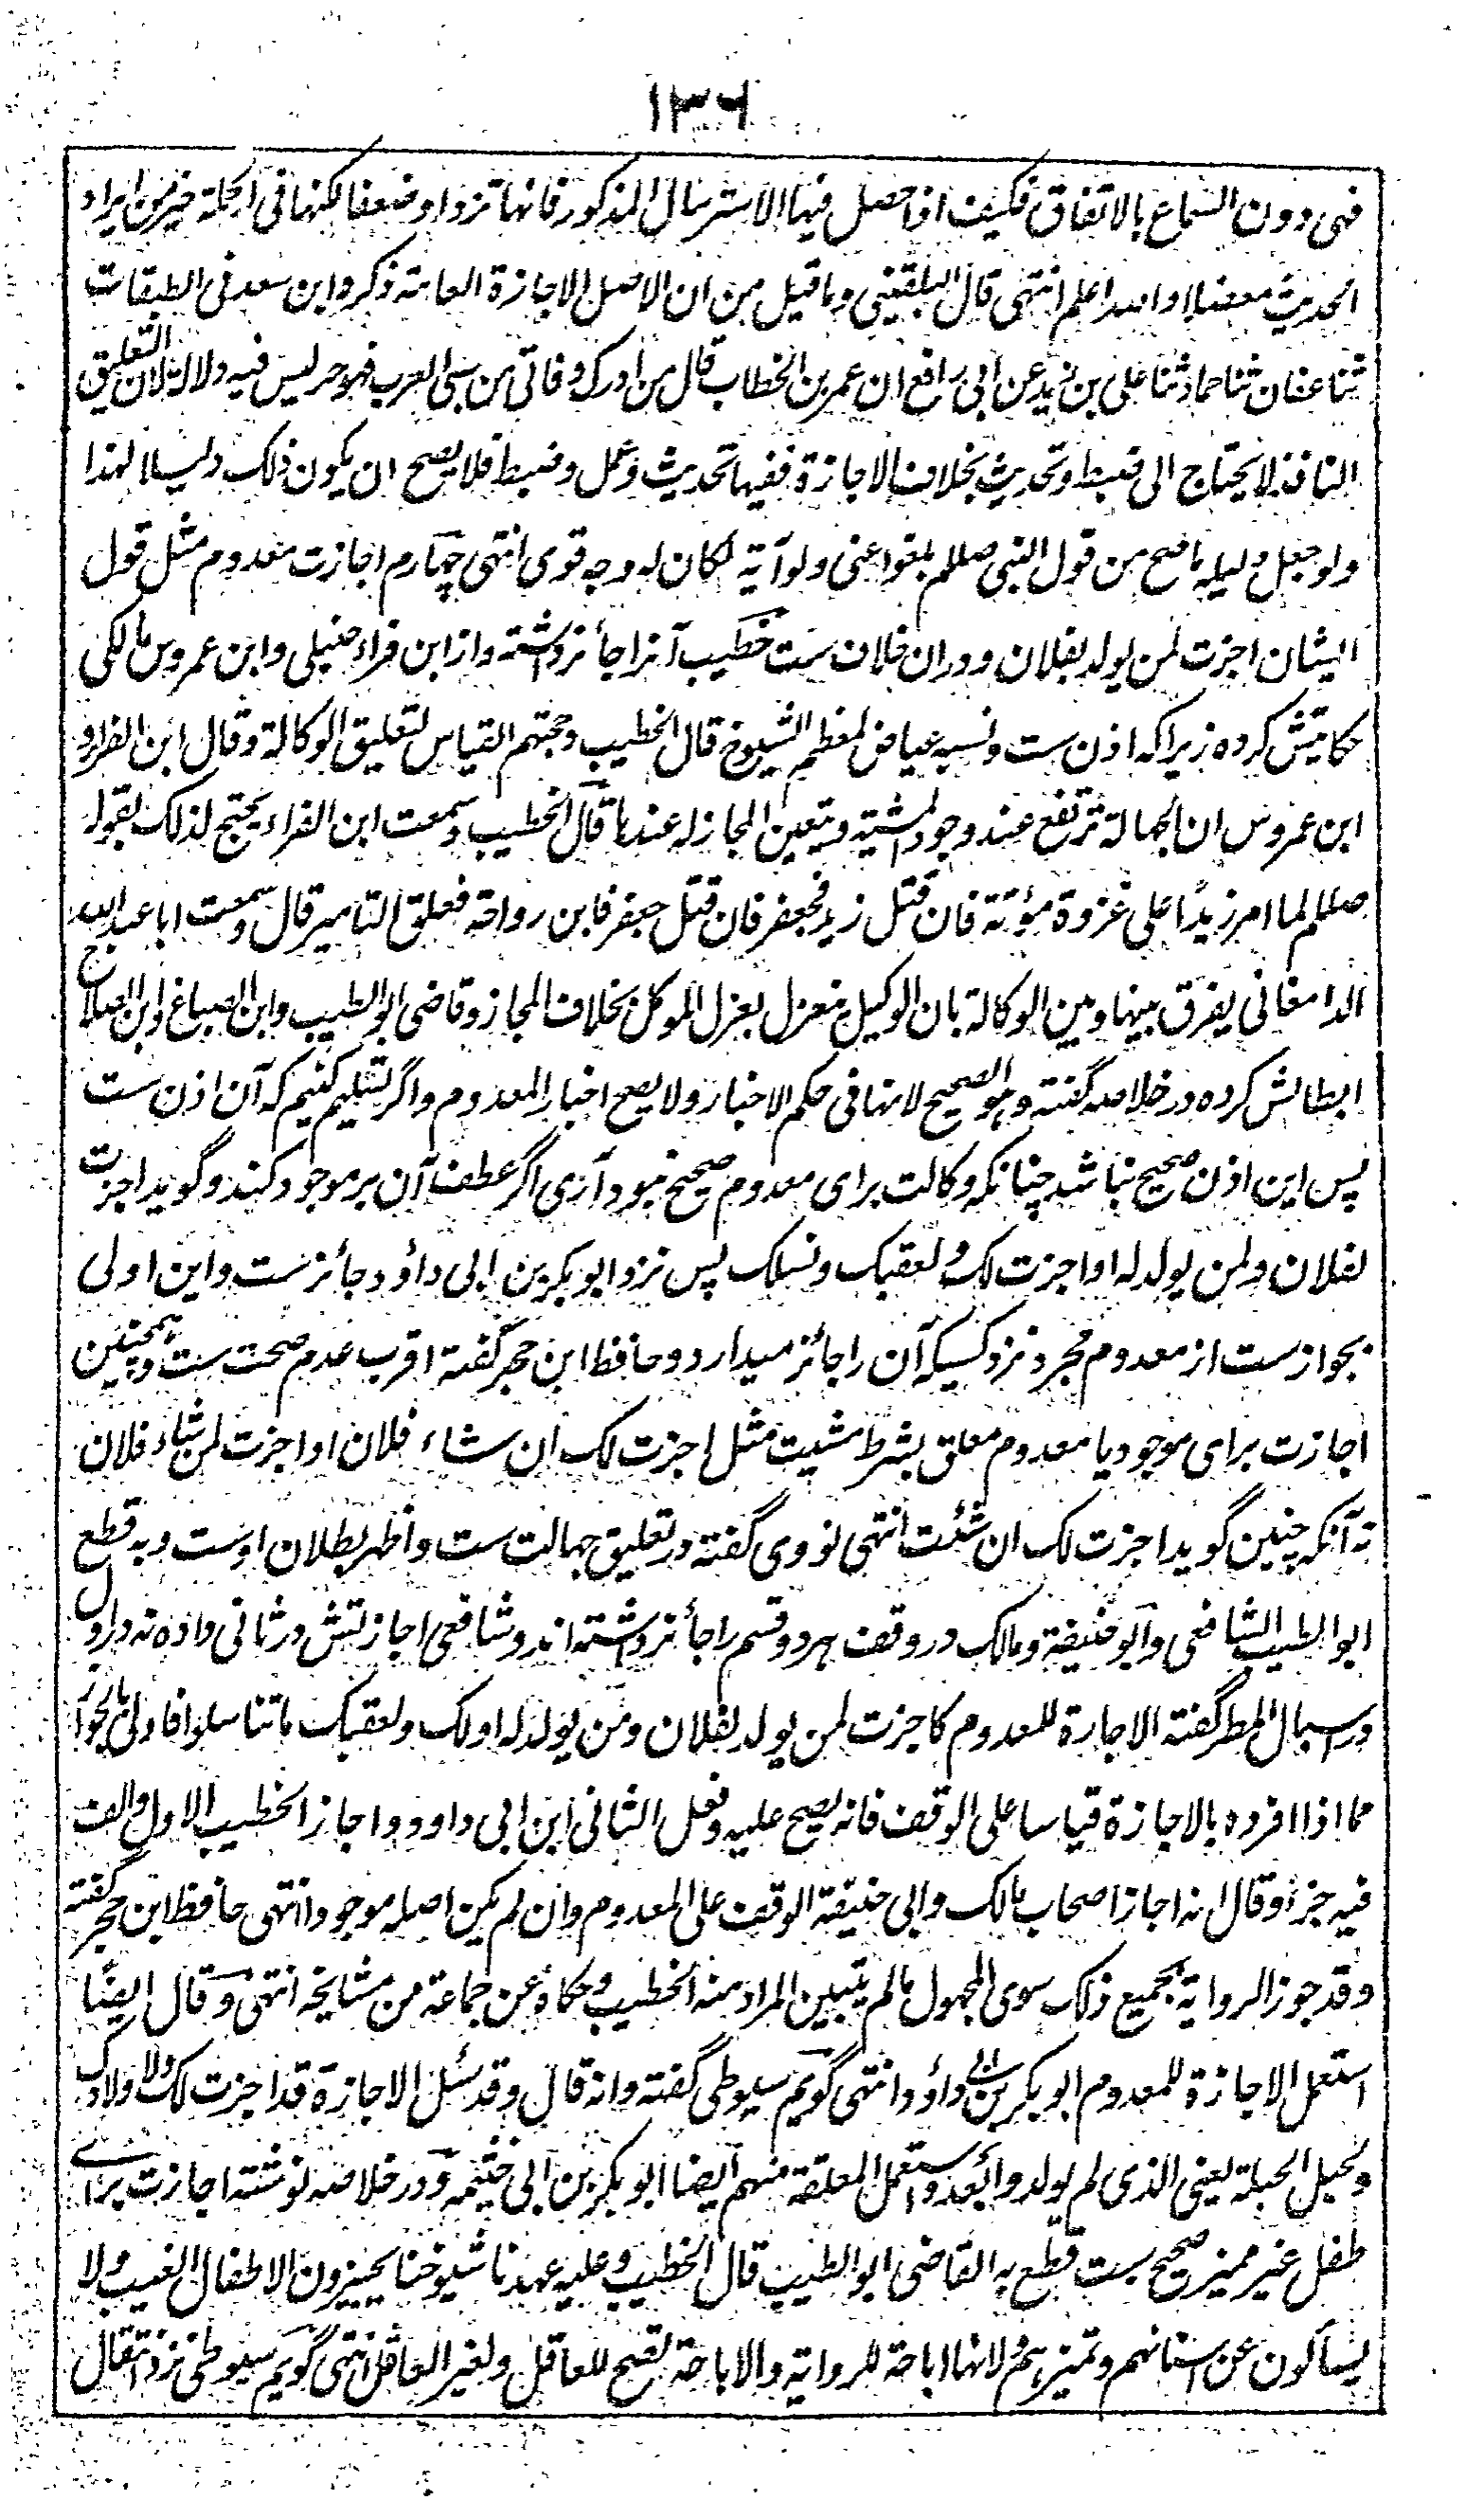 ۱۳۶
فهی دون السماع بالاتفاق فکیف اذا حصل فیها الاسترسال المذکور فانها تزداد ضعفا لکنها فی الجملة خیر من ایراد
الحدیث معضلا والله اعلم انتهی قال البلقینی وما قیل من ان الاصل الاجازة العامة ذکره ابن سعد فی الطبقات
ثنا عفان ثنا حماد ثنا علی بن زید عن ابی رافع ان عمر بن الخطاب قال من ادرک وفاتی من سبی العرب فهو حر لیس فیه دلالة لان التعلیق
النافذ لا یحتاج الی ضبط وتحدیث بخلاف الاجازة ففیها تحدیث وعمل وضبط فلا یصح ان یکون ذلک دلیلا لهذا
ولو جعل دلیله ما صح من قول النبی صللم بلغوا عنی ولو آیة لکان له وجه قوی انتهی چهارم اجازت معدوم مثل قول
ایشان اجزت لمن یولد بفلان ودران خلاف ست خطیب آنرا جائز داشته واز ابن فراء حنبلی وابن عمروس مالکی
حکایتش کرده زیراکه اذن ست ونسبه عیاض لمعظم الشیوخ قال الخطیب وحجتهم القیاس لتعلیق الوکالة وقال ابن الفراء و
ابن عمروس ان الجهالة ترتفع عند وجود المشیة ویتعین المجاز له عندها قال الخطیب وسمعت ابن الفراء یحتج لذلک بقوله
صللم لما امر زیدًا علی غزوة مؤتة فان قتل زید فجعفر فان قتل جعفر فابن رواحة فعلق التامیر قال وسمعت ابا عبد الله
الدامغانی یفرق بینها وبین الوکالة بان الوکیل ینعزل بعزل الموکل بخلاف المجاز وقاضی ابو الطیب وابن الصباغ وابن الصلاح
ابطالش کرده در خلاصه گفته وهو الصحیح لانها فی حکم الاخبار ولا یصح اخبار المعدوم واگر تسلیم کنیم که آن اذن ست
پس این اذن صحیح نباشد چنانکه وکالت برای معدوم صحیح نبود آری اگر عطف آن بر موجود کند وگوید اجزت
لفلان ولمن یولد له او اجزت لک ولعقبک ونسلک پس نزد ابو بکر بن ابی داؤد جائز ست واین اولی
بجواز ست از معدوم مجرد نزد کسیکه آن را جائز میدارد وحافظ ابن حجر گفته اقرب عدم صحت ست وهمچنین
اجازت برای موجود یا معدوم معلق بشرط مشیت مثل اجزت لک ان شاء فلان او اجزت لمن شاء فلان
نه آنکه چنین گوید اجزت لک ان شئت انتهی نووی گفته در تعلیق جهالت ست واظهر بطلان اوست وبه قطع
ابو الطیب الشافعی وابو حنیفة ومالک در وقف هر دو قسم را جائز داشته اند وشافعی اجازتش در ثانی داده نه در اول
ودر اسبال المطر گفته الاجازة للمعدوم کاجزت لمن یولد لفلان ومن یولد له او لک ولعقبک ما تناسلوا فاولی بالجواز
مما اذا افرده بالاجازة قیاسا علی الوقف فانه یصح علیه وفعل الثانی ابن ابی داوود واجاز الخطیب الاول والف
فیه جزءً وقال انه اجاز اصحاب مالک وابی حنیفة الوقف علی المعدوم وان لم یکن اصله موجودا انتهی حافظ ابن حجر گفته
وقد جوز الروایة بجمیع ذلک سوی المجهول ما لم یتبین المراد منه الخطیب وحکاه عن جماعة من مشایخه انتهی وقال ایضًا
استعمل الاجازة للمعدوم ابو بکر بن ابی داؤد انتهی گویم سیوطی گفته وانه قال وقد سئل الاجازة قد اجزت لک ولاولادک
ولحبل الحبلة یعنی الذی لم یولدوا بعد واستعمل المعلقة منهم ایضا ابو بکر بن ابی خیثمه ودر خلاصه نوشته اجازت برای
طفل غیر ممیز صحیح ست قطع به القاضی ابو الطیب قال الخطیب وعلیه عهدنا شیوخنا یجیزون الاطفال الغیب ولا
یسألون عن اسنانهم وتمیزهم لانها اباحة للروایة والاباحة تصح للعاقل ولغیر العاقل انتهی گویم سیوطی نزد انتقال